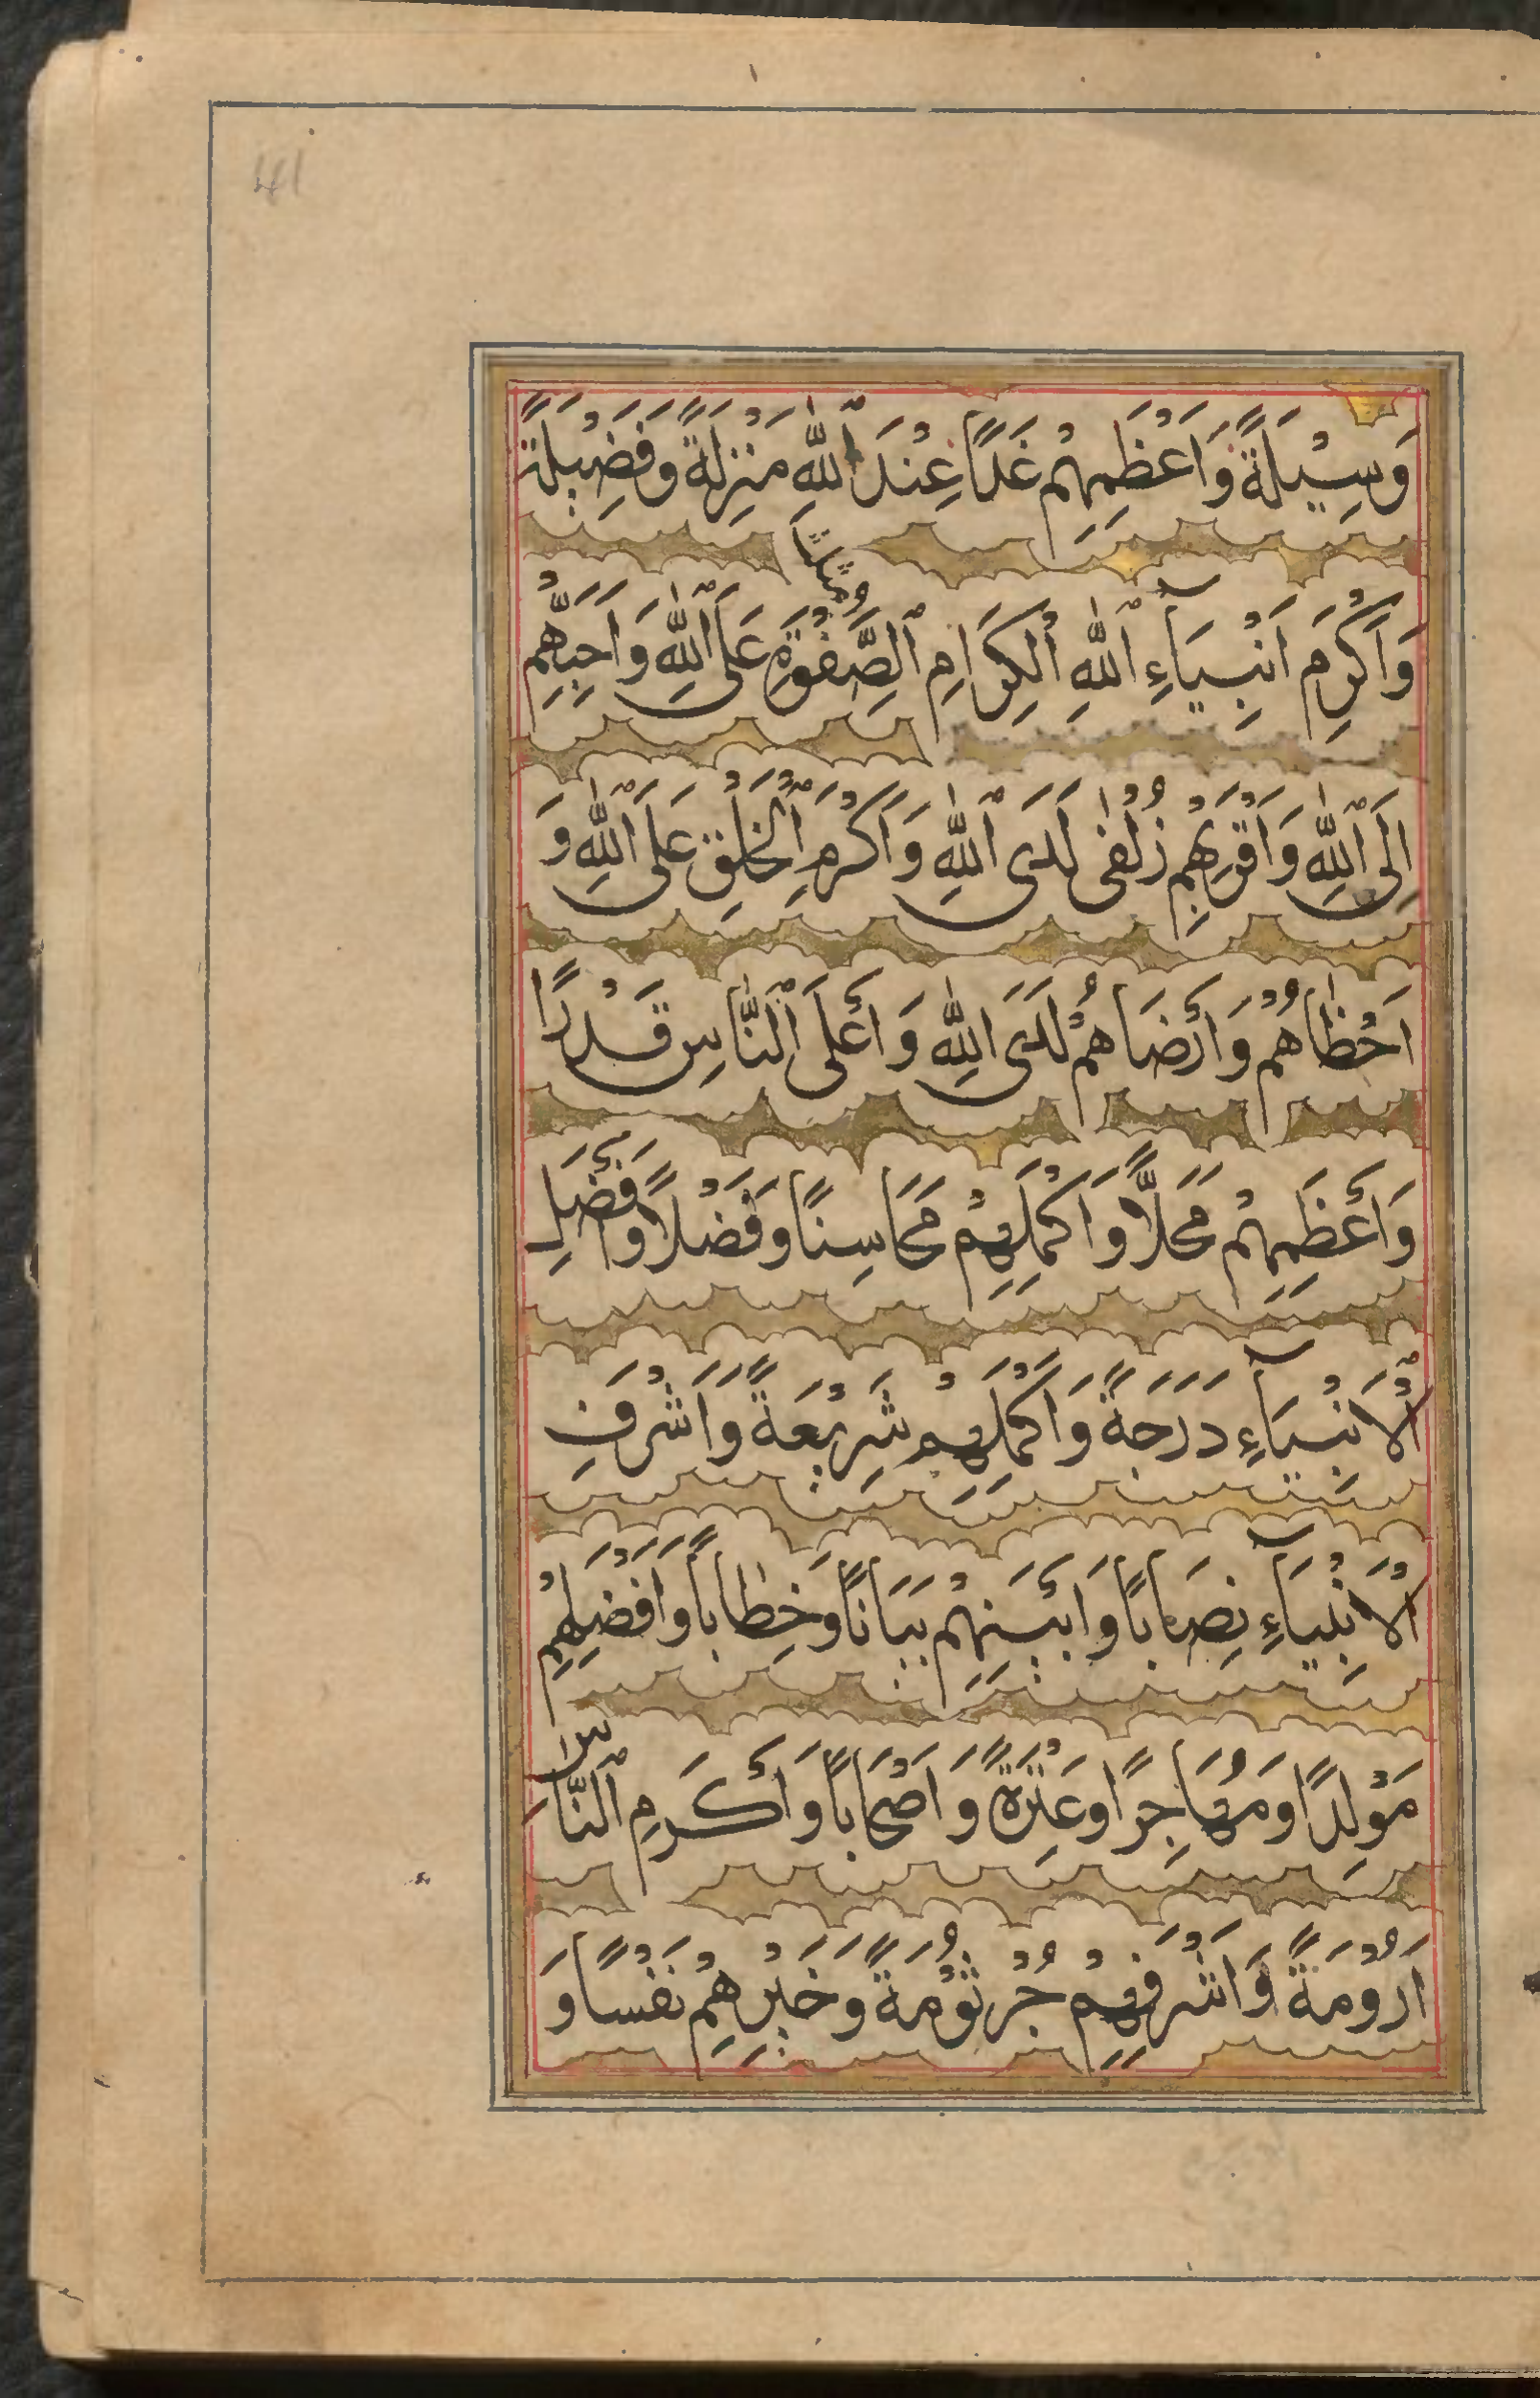 41
وَسِيْلَةً وَاَعْظَمِهِمْ غَدًا عِنْدَ ٱللّٰهِ مَنْزِلَةً وَفَضِيْلَةً
وَاَكْرَمِ اَنْبِيَآءِ ٱللّٰهِ ٱلْكِرَامِ ٱلصَّفْوَةِ عَلَى ٱللّٰهِ وَاَحَبِّهِمْ
اِلَى ٱللّٰهِ وَاَقْرَبِهِمْ زُلْفٰى لَدَى ٱللّٰهِ وَاَكْرَمِ ٱلْخَلْقِ عَلَى ٱللّٰهِ وَ
اَحْظَاهُمْ وَاَرْضَاهُمْ لَدَى اللّٰهِ وَاَعْلَى ٱلنَّاسِ قَدْرًا
وَاَعْظَمِهِمْ مَحَلًّا وَاَكْمَلِهِمْ مَحَاسِنًا وَفَضْلًا وَاَفْضَلِ
ٱلْاَنْبِيَآءِ دَرَجَةً وَاَكْمَلِهِمْ شَرِيْعَةً وَاَشْرَفِ
الْاَنْبِيَآءِ نِصَابًا وَاَبْيَنِهِمْ بَيَانًا وَخِطَابًا وَاَفْضَلِهِمْ
مَوْلِدًا وَمُهَاجَرًا وَعِتْرَةً وَاَصْحَابًا وَاَكْرَمِ ٱلنَّاسِ
اَرُوْمَةً وَاَشْرَفِهِمْ جُرْثُوْمَةً وَخَيْرِهِمْ نَفْسًا وَ